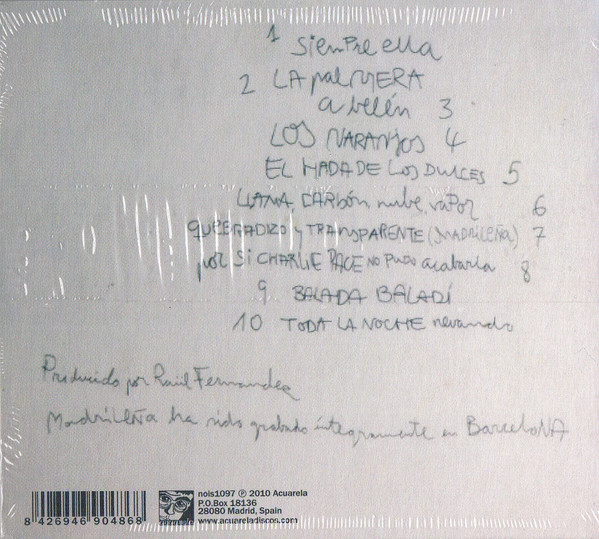 1 siempre ella
2 LA palMERA
a belén 3
LOS NARANJOS 4
EL HADA DE LOS DULCES 5
LLAMA, CARBÓN nube, vapor 6
QUEBRADIZO y TRANSPARENTE (MADRILEÑA) 7
por si CHARLIE PACE no PUDO acabarla 8
9 BALADA BALADÍ
10 TODA LA NOCHE nevando
Producido por Raül Fernandez
Madrileña ha sido grabado íntegramente en BarceloNA
nois1097 ℗ 2010 Acuarela
P.O.Box 18136
28080 Madrid, Spain
www.acuareladiscos.com
8 426946 904868